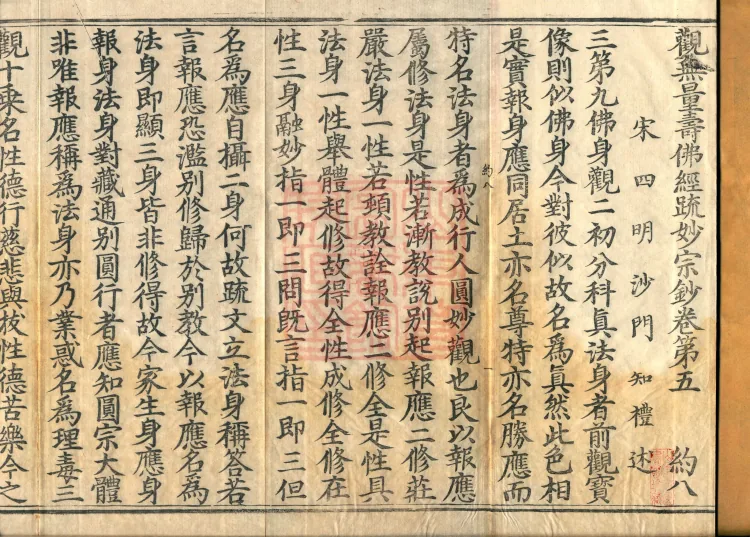 觀無量壽佛經疏妙宗鈔卷第五 約八
宋四明沙門知禮述
三第九佛身觀二初分科真法身者前觀寶
像則似佛身今對彼似故名為真然此色相
是實報身應同居土亦名尊特亦名勝應而
特名法身者為成行人圓妙觀也良以報應
屬修法身是性若漸教說別起報應二修莊
嚴法身一性若頓教詮報應二修全是性具
法身一性舉體起修故得全性成修全修在
性三身融妙指一即三問既言指一即三但
名為應自攝二身何故疏文立法身稱答若
言報應恐濫別修歸於別教今以報應名為
法身即顯三身皆非修得故今家生身應身
報身法身對藏通別圓行者應知圓宗大體
非唯報應稱為法身亦乃業惑名為理毒三
觀十乘名性德行慈悲與拔性德苦樂今之
約八